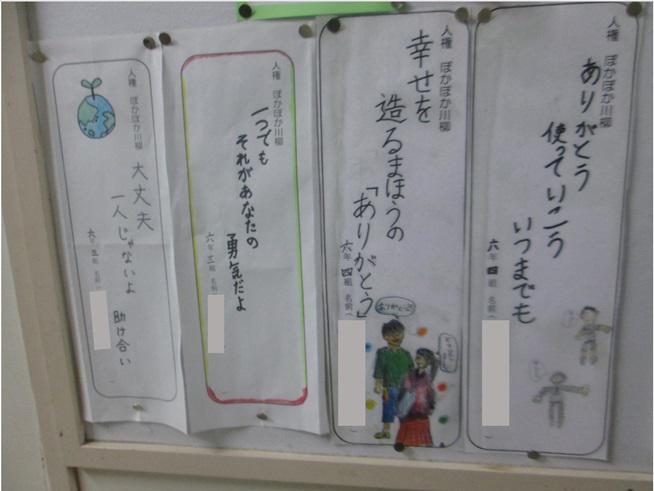 人権 ぽかぽか川柳
ありがとう
使っていこう
いつまでも
六年 四組 名前
人権 ぽかぽか川柳
幸せを
造るまほうの
「ありがとう」
六年 四組 名前
ありがとう
人権 ぽかぽか川柳
一つでも
それがあなたの
勇気だよ
六年 三組 名前
人権 ぽかぽか川柳
大丈夫
一人じゃないよ
助け合い
六年 三組 名前